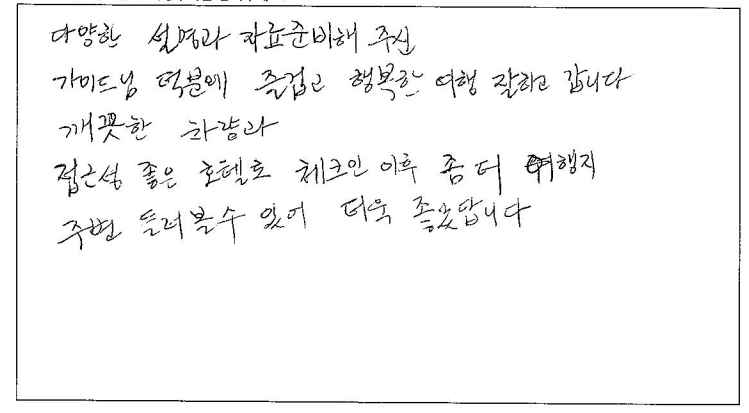 다양한 설명과 자료준비해 주신
가이드님 덕분에 즐겁고 행복한 여행 잘하고 갑니다
깨끗한 차량과
접근성 좋은 호텔로 체크인 이후 좀 더 여행지
주변 둘러볼수 있어 더욱 좋았답니다